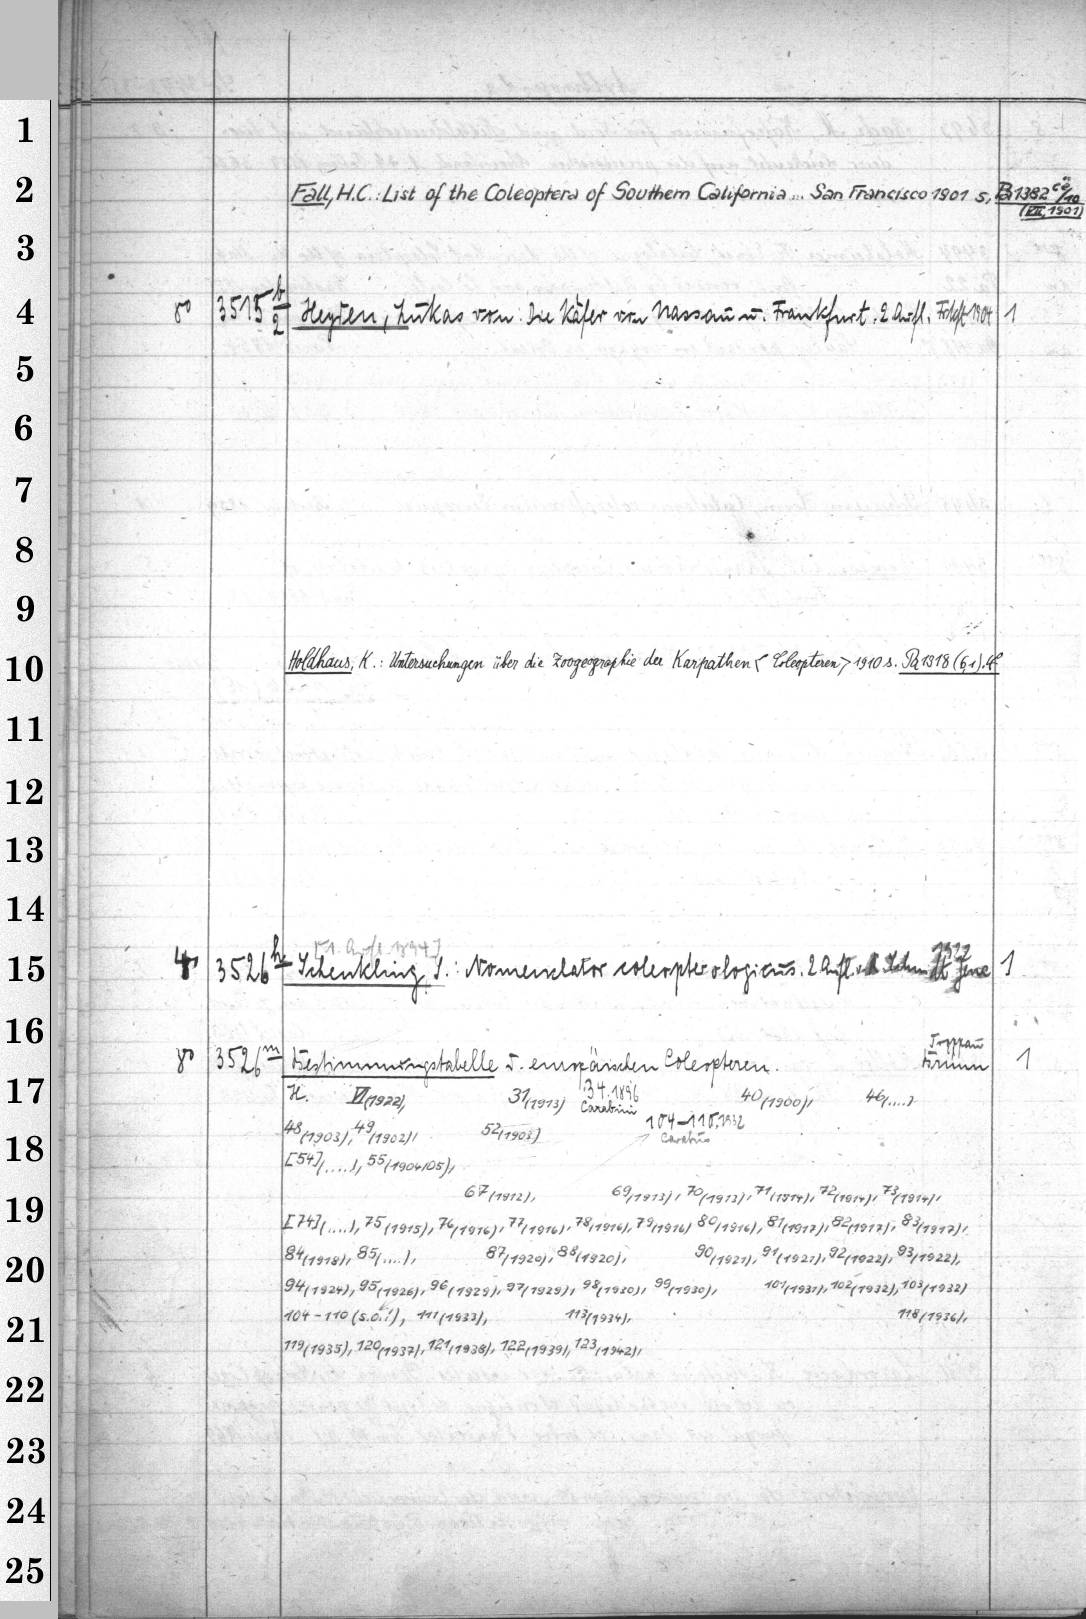 Fall, H.C.: List of the Coleoptera of Southern California... San Francisco 1901 s. Pa 1382 cd/10
(VIII, 1901)
8° 3515 b/2 Heyden, Lukas von: Die Käfer von Nassau u. Frankfurt. 2 Aufl. Frkft 1904 1
Holdhaus, K.: Untersuchungen über die Zoogeographie der Karpathen < Coleopteren > 1910 s. Pa 1318 (6,1). 4°
[1. Aufl. 1894] 1922
4° 3526 h Schenkling, S.: Nomenclator coleopterologicus. 2 Aufl. Jena 1
8° 3526 m Bestimmungstabelle d. europäischen Coleopteren. Troppau Brünn 1
H. VI (1922), 31 (1913) 34.1896 Carabini 40 (1900), 46 (....)
48 (1903), 49 (1902), 52 (1903) 104-110, 1932 Carabus
[54] (....), 55 (1904/05),
67 (1912), 69 (1913), 70 (1913), 71 (1914), 72 (1914), 73 (1914),
[74] (....), 75 (1915), 76 (1916), 77 (1916), 78 (1916), 79 (1916) 80 (1916), 81 (1917), 82 (1917), 83 (1917),
84 (1918), 85 (....), 87 (1920), 88 (1920), 90 (1921), 91 (1921), 92 (1922), 93 (1922),
94 (1924), 95 (1926), 96 (1929), 97 (1929), 98 (1930), 99 (1930), 101 (1931), 102 (1932), 103 (1932)
104-110 (s.o.!), 111 (1933), 113 (1934), 118 (1936),
119 (1935), 120 (1937), 121 (1938), 122 (1939), 123 (1942),
1
2
3
4
5
6
7
8
9
10
11
12
13
14
15
16
17
18
19
20
21
22
23
24
25